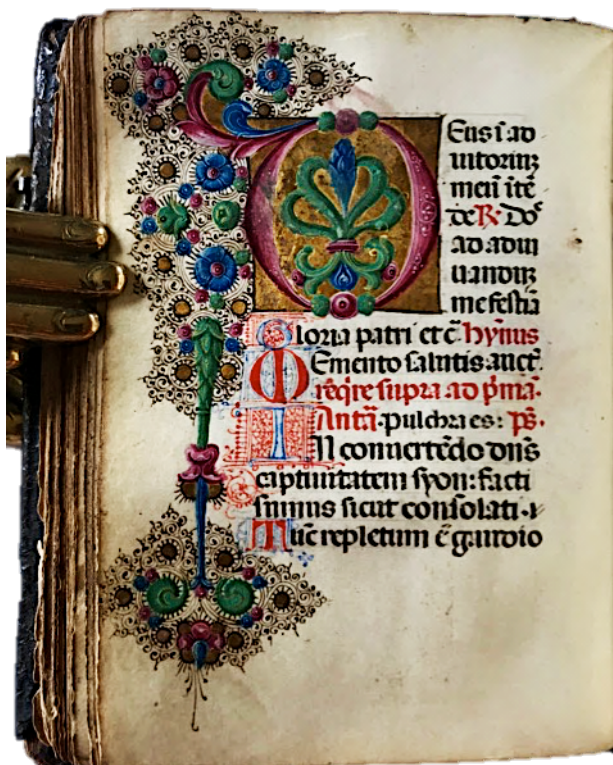 Deus ī ad
iutoriuꝫ
meū ītē
de. ℟. Do͛
ad adiu
uanduꝫ
me festīa
Gloria patri et c̄ hȳnus
Memento salutis auct͛.
req̇re supra ad ṗmā.
Antā. Pulchra es: p̄s.
In conuertēdo dn̄s
captiuitatem syon: facti
sumus sicut consolati. ·
Tūc repletum ē gaudio